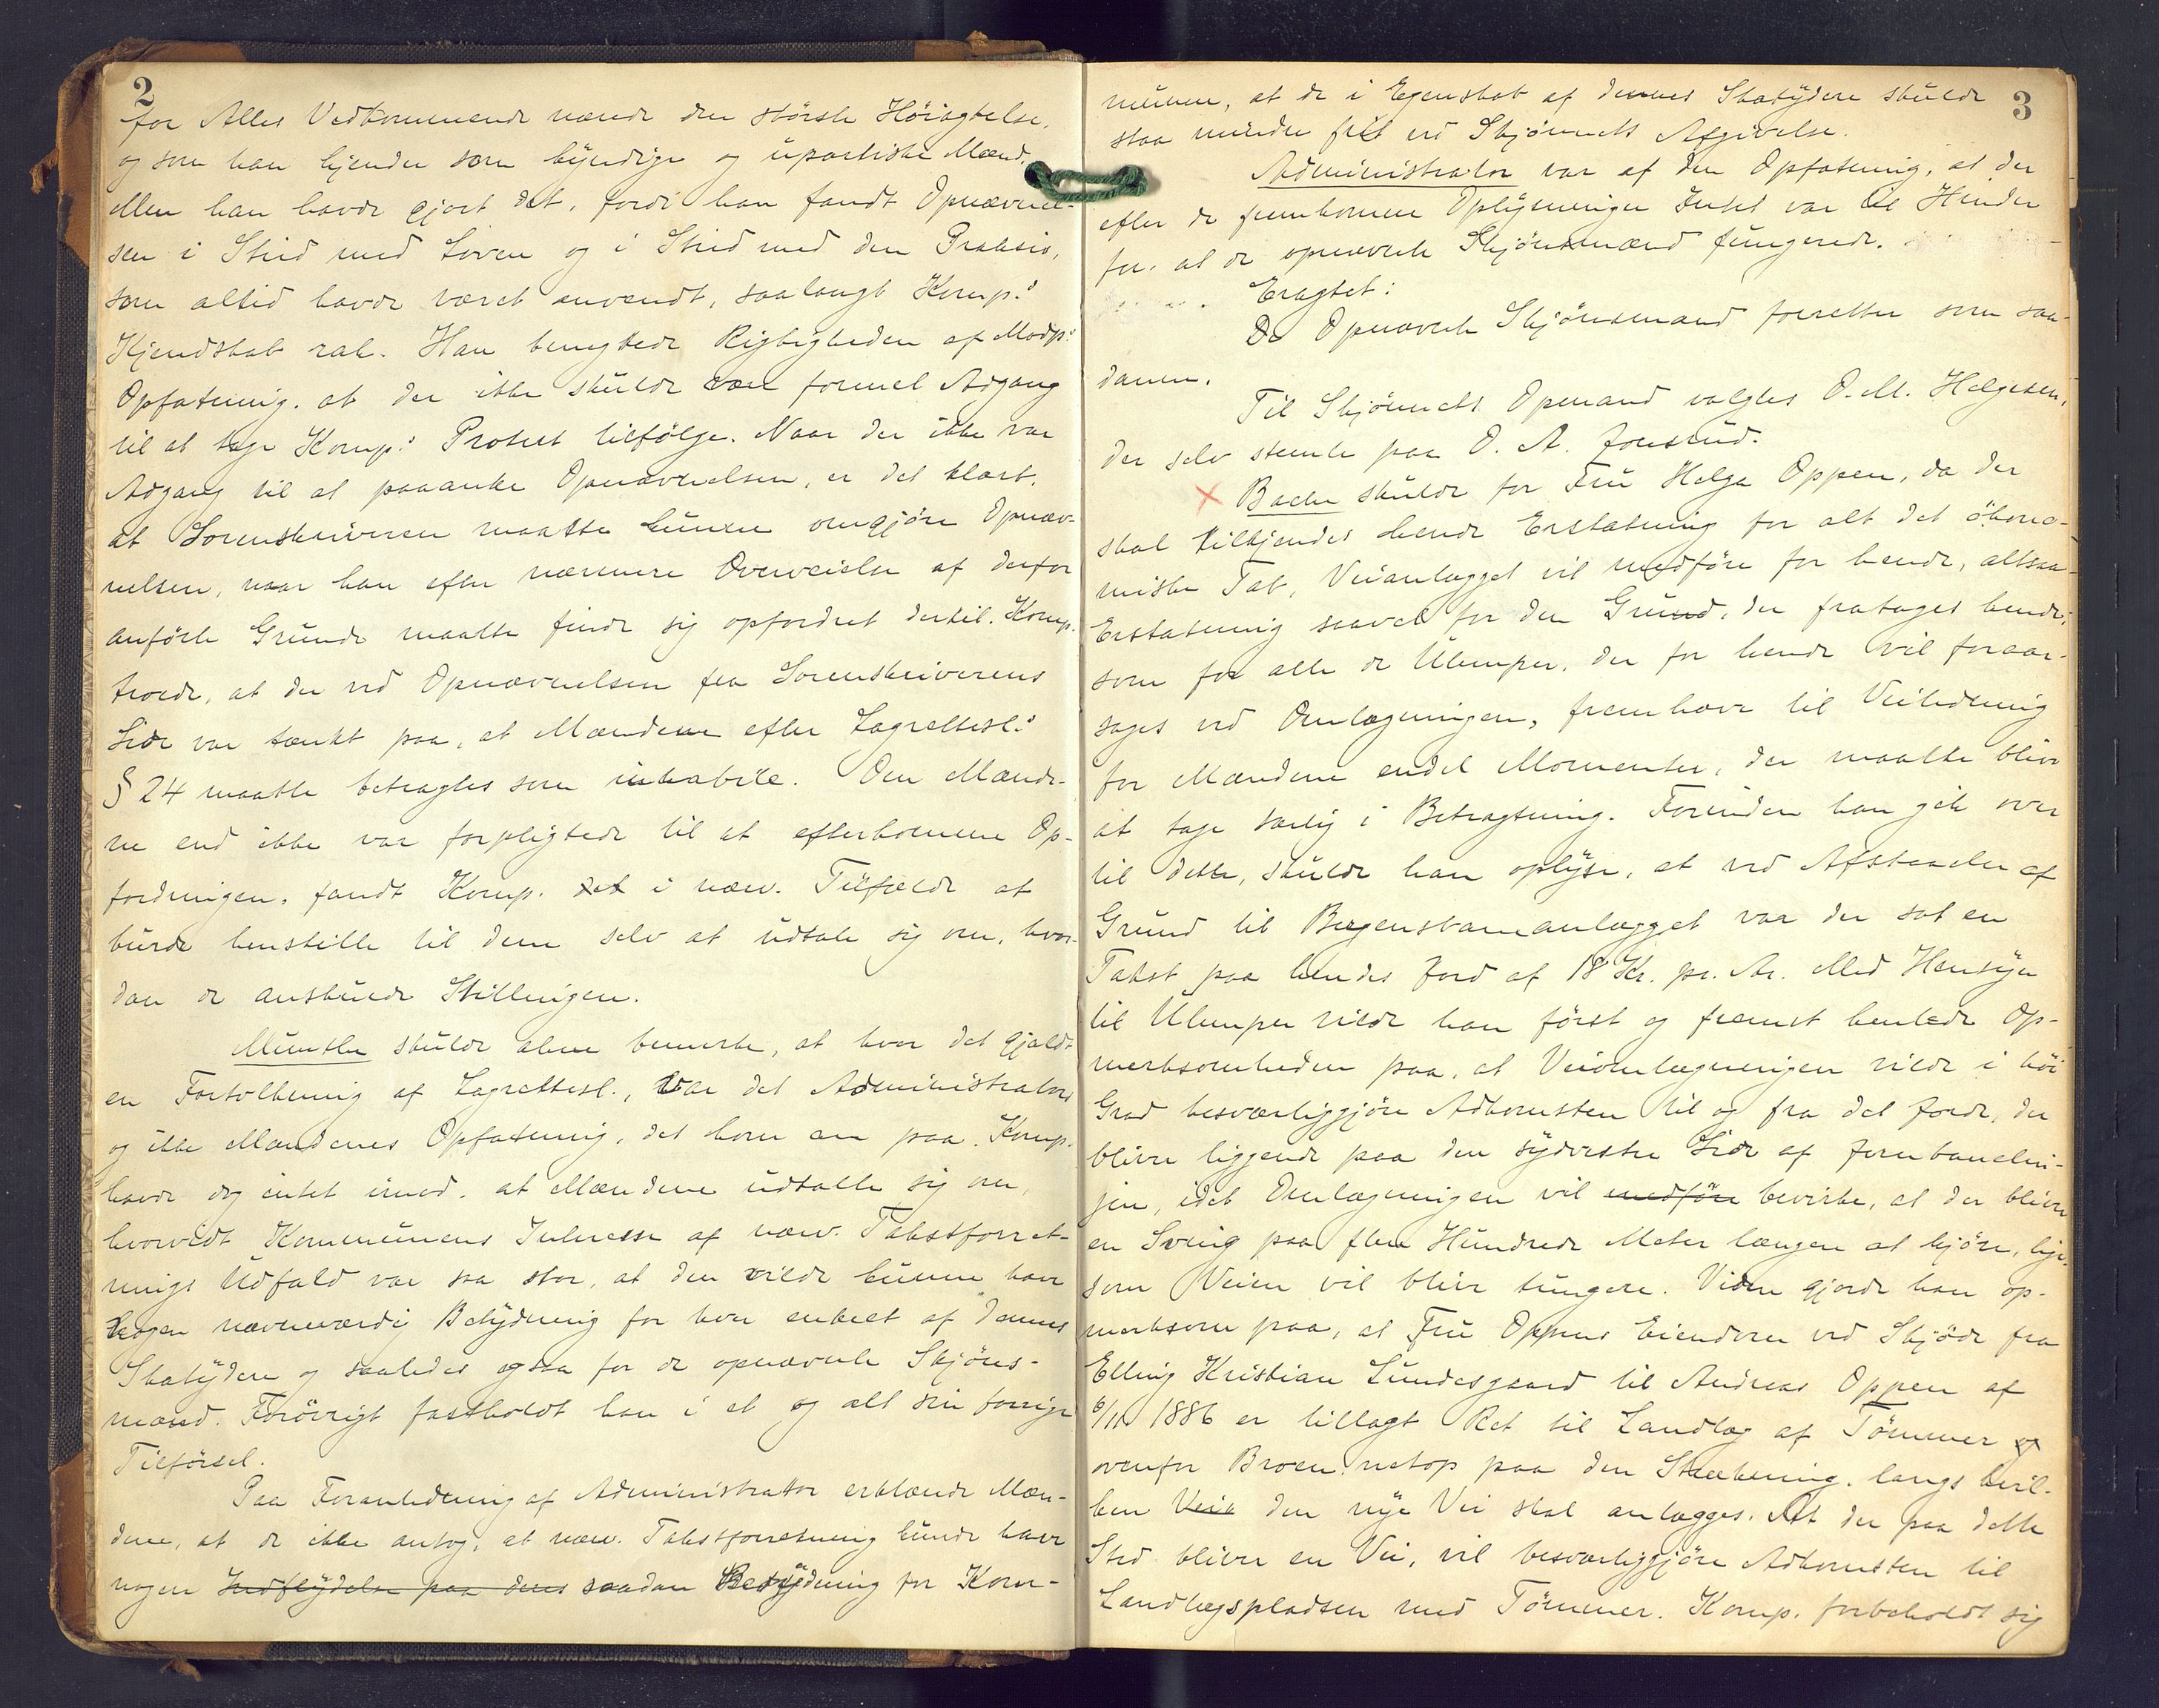 2
for Alles Vedkommende nærede den største Høiagtelse,
og som han kjender som kyndige og upartiske Mænd.
Men han havde gjort det, fordi han fandt Opnævnel-
sen i Strid med Loven og i Strid med den Praksis,
som altid havde været anvendt, saalangt Komp.s
Kjendskab rak. Han benegtede Rigtigheden af Modp.s
Opfatning, at der ikke skulde være formel Adgang
til at tage Komp.s Protest tilfølge. Naar der ikke var
Adgang til at paaanke Opnævnelsen, er det klart,
at Sorenskriveren maatte kunne omgjøre Opnæv-
nelsen, naar han efter nærmere Overveielse af derfor
anførte Grunde maatte finde sig opfordret dertil. Komp.
troede, at der ved Opnævnelsen fra Sorenskriverens
Side var tænkt paa, at Mændene efter Lagrettesl.s
§ 24 maatte betragtes som inhabile. Om Mænde-
ne end ikke var forpligtede til at efterkomme Op-
fordringen, fandt Komp. det i nærv. Tilfælde at
burde henstille til dem selv at udtale sig om, hvor-
dan de anskuede Stillingen.
Munthe skulde alene bemerke, at hvor det gjaldt
en Fortolkning af Lagrettesl., var det Administrators
og ikke Mændenes Opfatning, det kom an paa. Komp.
havde dog intet imod, at Mændene udtalte sig om,
hvorvidt Kommunens Interesse af nærv. Takstforret-
nings Udfald var saa stor, at den vilde kunne have
nogen nævneværdig Betydning for hver enkelt af dennes
Skatydere og saaledes ogsaa for de opnævnte Skjøns-
mænd. Forøvrigt fastholdt han i et og alt sin forrige
Tilførsel.
Paa Foranledning af Administrator erklærede Mæn-
dene, at de ikke antog, at nærv. Takstforretning kunde have
nogen Indflydelse paa deres saadan Betydning for Kom-
3
munen, at de i Egenskab af dennes Skatydere skulde
staa mindre frit ved Skjønnets Afgivelse.
Administrator var af den Opfatning, at der
efter de fremkomne Oplysninger Intet var til Hinder
for, at de opnævnte Skjønsmænd fungerede.
Eragtet:
De Opnævnte Skjønsmænd forretter som saa-
danne.
Til Skjønnets Opmand valgtes O. M. Helgesen,
der selv stemte paa O. A. Jonsrud.
Bache skulde for Fru Helga Oppen, da der
skal tilkjendes hende Erstatning for alt det økono-
miske Tab, Veianlægget vil medføre for hende, altsaa
Erstatning saavel for den Grund, der fratages hende,
som for alle de Ulemper, der for hende vil foraar-
sages ved Omlægningen, fremhæve til Veiledning
for Mændene endel Momenter, der maatte blive
at tage særlig i Betragtning. Forinden han gik over
til dette, skulde han oplyse, at ved Afstaaelse af
Grund til Bergensbaneanlægget var der sat en
Takst paa hendes Jord af 18 Kr. pr. Ar. Med Hensyn
til Ulemper vilde han først og fremst henlede Op-
merksomheden paa, at Veiomlægningen vilde i høi
Grad besværliggjøre Adkomsten til og fra det Jorde, der
bliver liggende paa den sydvestre Side af Jernbanelin-
jen, idet Omlægningen vil medføre bevirke, at der bliver
en Sving paa flere Hundrede Meter længere at kjøre, lige-
som Veien vil blive tungere. Viden gjorde han op-
merksom paa, at Fru Oppens Eiendom ved Skjøde fra
Elling Kristian Lundesgaard til Andreas Oppen af
6/11 1886 er tillagt Ret til Landlæg af Tømmer
ovenfor Broen netop paa den Strækning, langs hvil-
ken Veia den nye Vei skal anlægges. At der paa dette
Sted bliver en Vei, vil besværliggjøre Adkomsten til
Landlægspladsen med Tømmer. Komp. forbeholdt sig